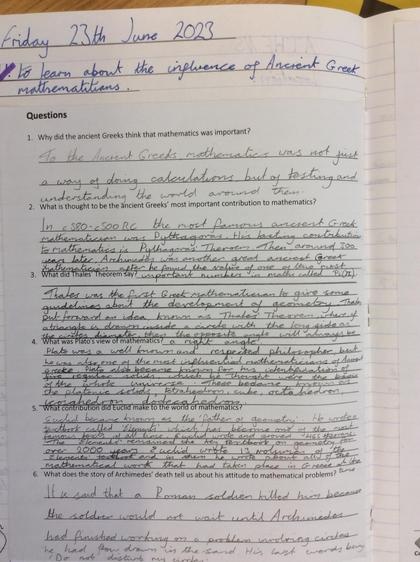 Friday 23th June 2023
to learn about the influence of Ancient Greek
mathematitians.
Questions
1. Why did the ancient Greeks think that mathematics was important?
To the Ancient Greeks mathematics was not just
a way of doing calculations but of testing and
understanding the world around them.
2. What is thought to be the ancient Greeks' most important contribution to mathematics?
In c580-c500 BC the most famous ancient Greek
mathematician was Pythagoras. His lasting contribution
to mathematics is Pythagoras' Theorem. Then around 300
years later, Archimedes was another great ancient Greek
mathematician after he found the value of one of the most
3. What did Thales' Theorem say? important numbers in maths called Pi (π)
Thales was the first Greek mathematician to give some
guidelines about the development of geometry. Thales
put forward an idea known as Thales Theorem, that if
a triangle is drawn inside a circle with the long side as
the circle's diameter then the opposite angle will always be
4. What was Plato's view of mathematics? a right angle
Plato was a well known and respected philosopher but
he was also one of the most influential mathematicians of Ancient
Plato also became known for his identification of
five regular solids which he thought were the basis
of the whole universe. These became known as
the platonic solids: tetrahedron, cube, octahedron,
icosahedron, dodecahedron.
5. What contribution did Euclid make to the world of mathematics?
Euclid became known as the 'Father of Geometry'. He wrote a
textbook called 'Elements' which has become one of the most
famous books of all time. Euclid wrote and proved
The 'Elements' remained the key textbook on geometry for
over 2000 years. Euclid wrote 13 volumes of the
Elements textbook and in them he wrote about all of the
mathematical work that had taken place in Greece at the time
6. What does the story of Archimedes' death tell us about his attitude to mathematical problems?
It is said that a Roman soldier killed him because
the soldier would not wait until Archimedes
had finished working on a problem involving circles
he had drawn in the sand. His last words being
'Do not disturb my circles'